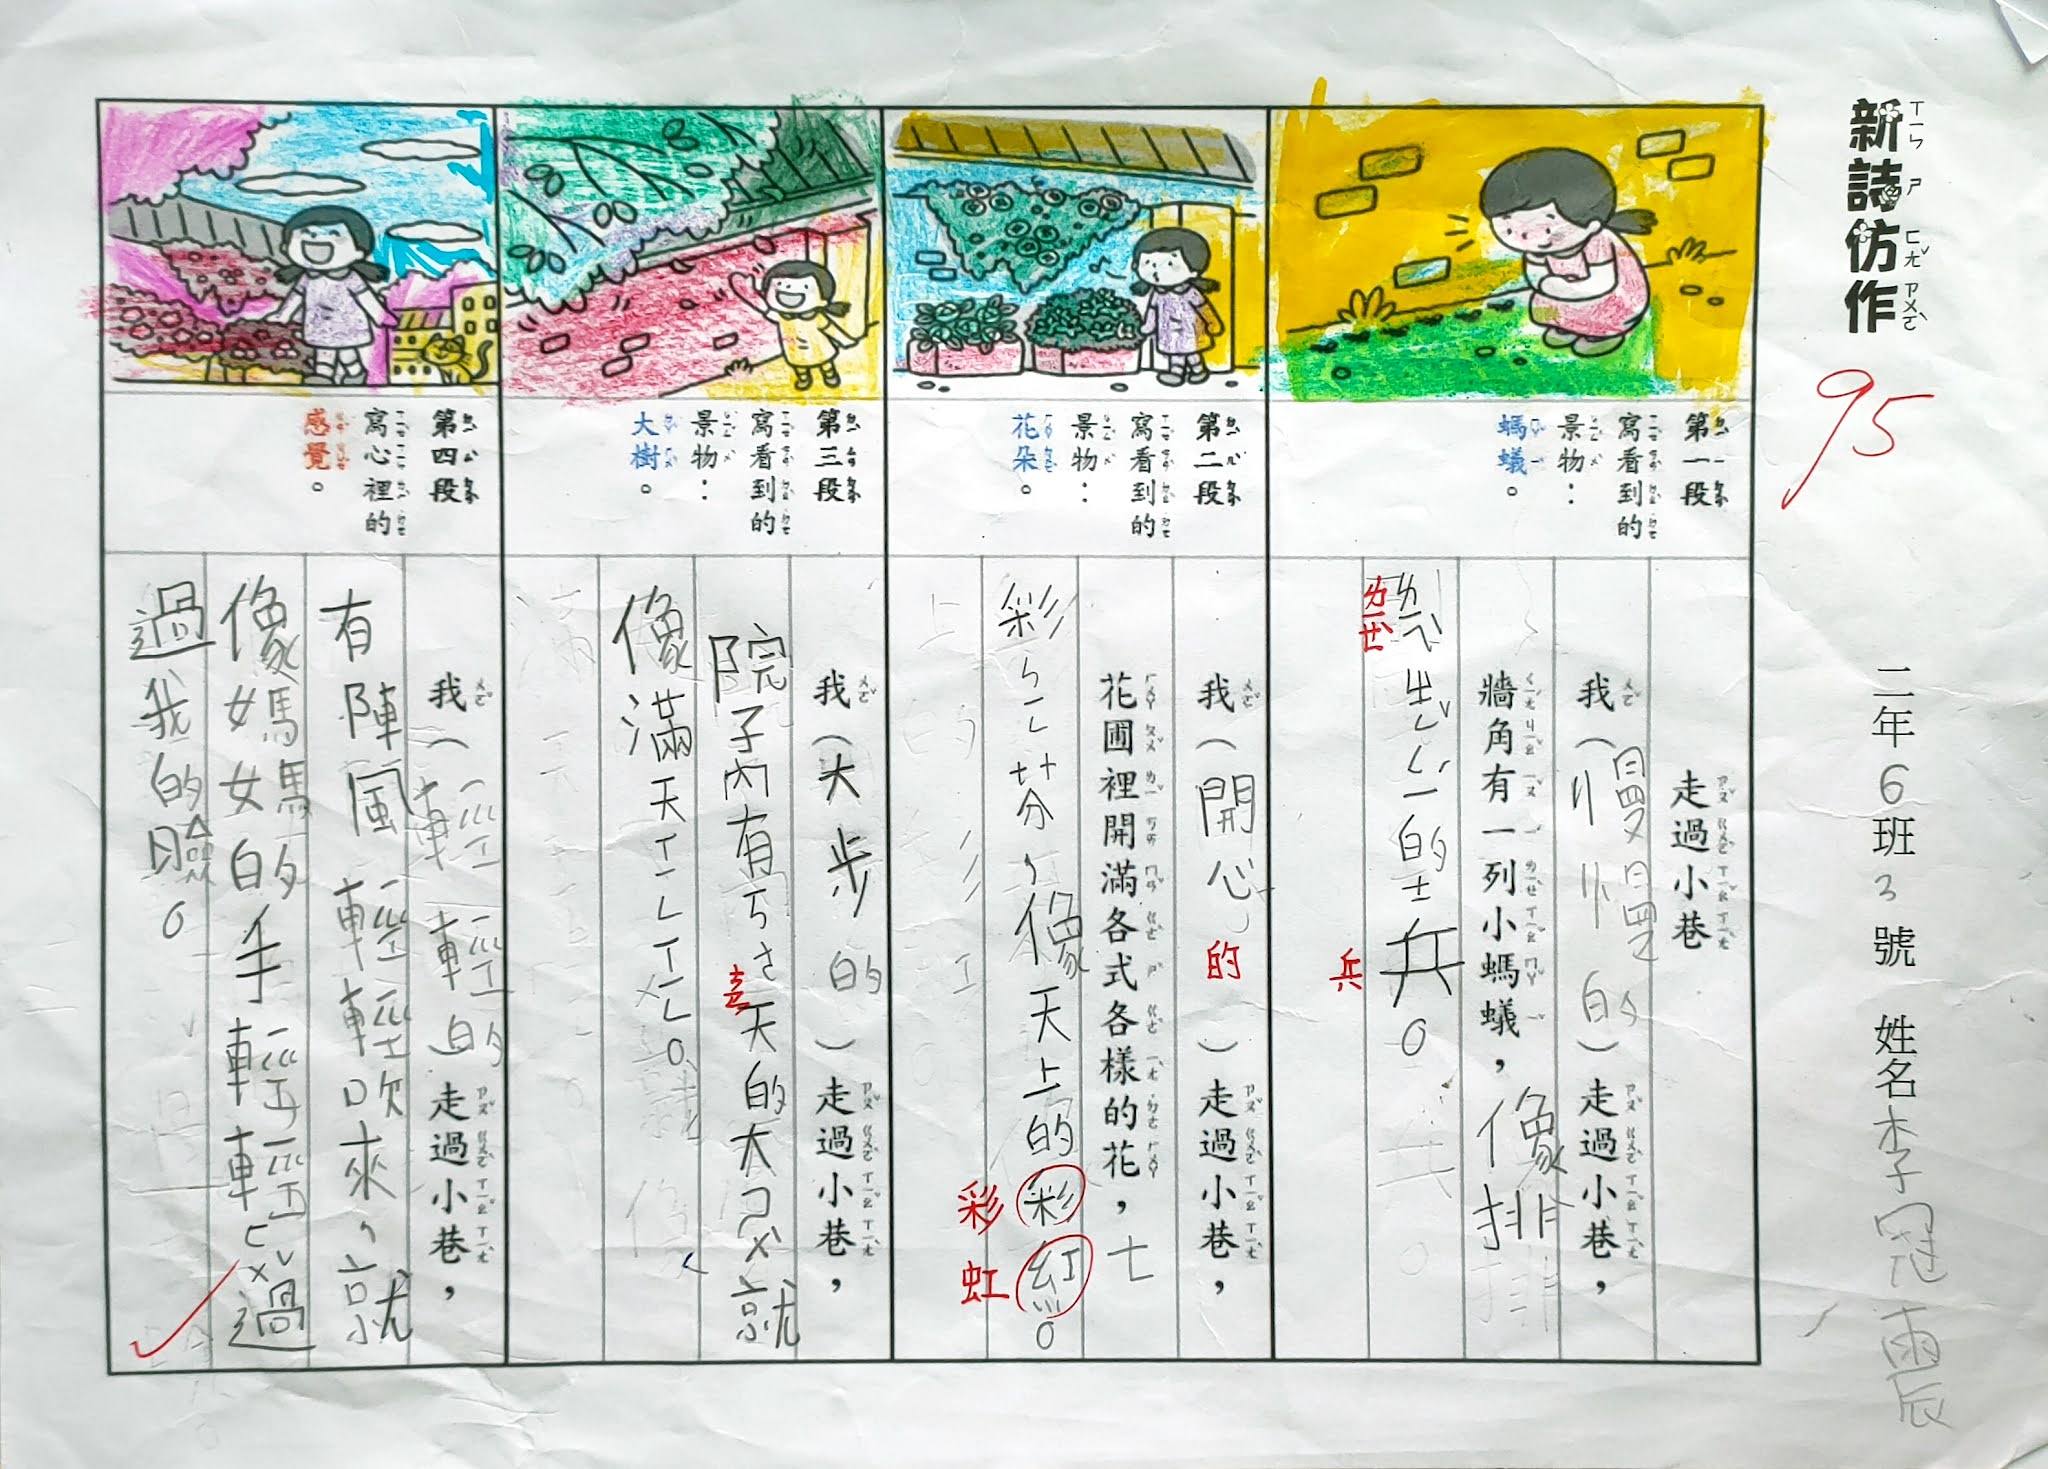 新詩仿作
ㄒㄧㄣ ㄕ ㄈㄤˇ ㄗㄨㄛˋ
95
二年6班3號 姓名李冠霖
第一段
寫看到的
景物：
螞蟻。
走過小巷
我（慢慢的）走過小巷，
牆角有一列小螞蟻，像排
的士兵。
ㄌㄧㄝˋ
兵
第二段
寫看到的
景物：
花朵。
我（開心的）走過小巷，
花圃裡開滿各式各樣的花，七
彩ㄅㄧㄣ芬，像天上的彩紅。
彩虹
第三段
寫看到的
景物：
大樹。
我（大步的）走過小巷，
院子內有ㄎㄠ天的大ㄕㄨˋ就
像滿天ㄒㄧㄥㄒㄧㄥ。
第四段
寫心裡的
感覺。
我（輕輕的）走過小巷，
有陣風輕輕吹來，就
像媽媽的手輕輕ㄈㄨˇ過
過我的臉。